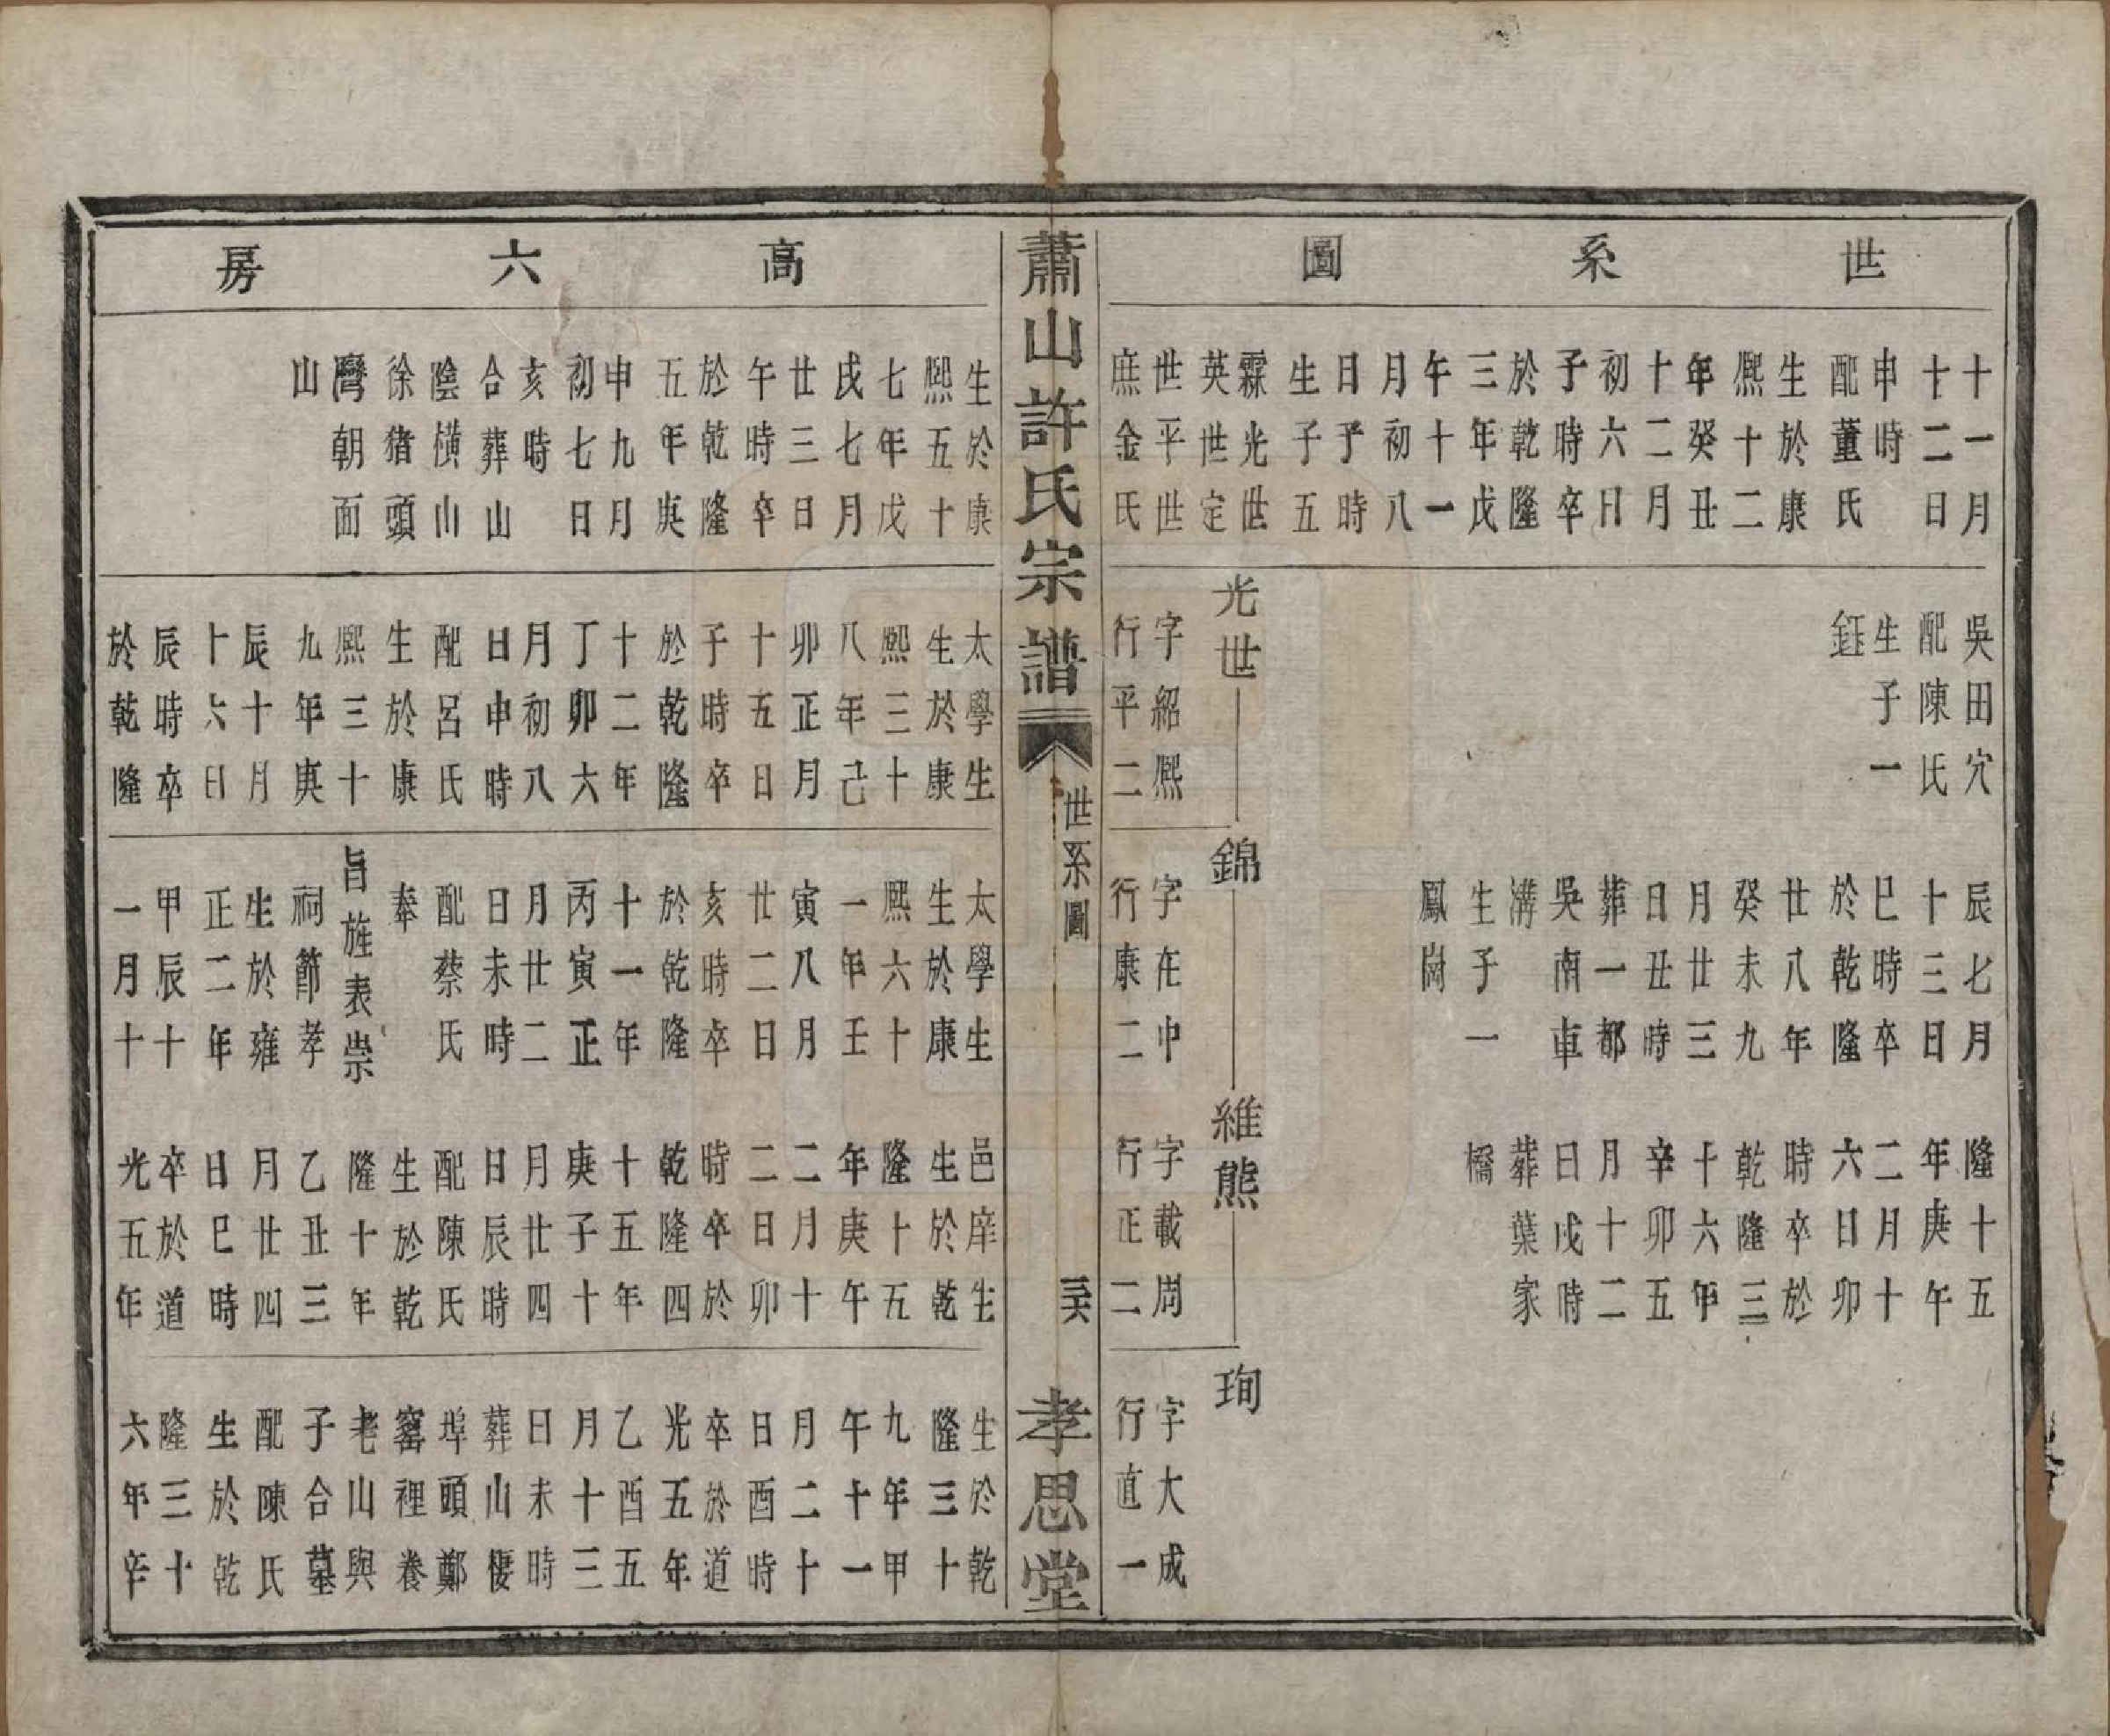 世系圖
十一月
十二日
申時
配董氏
生於康
熙十二
年癸丑
十二月
初六日
子時卒
於乾隆
三年戊
午十一
月初八
日予時
生子五
霖光世
英世定
世平世
庶金氏
吳田穴
配陳氏
生子一
鈺
光世
字紹熙
行平二
辰七月
十三日
巳時卒
於乾隆
廿八年
癸未九
月廿三
日丑時
葬一都
吳南車
溝
生子一
鳳崗
錦
字在中
行康二
隆十五
年庚午
二月十
六日卯
時卒於
乾隆三
十六年
辛卯五
月十二
日戌時
葬葉家
橋
維熊
字載周
行正二
珣
字大成
行直一
蕭山許氏宗譜
世系圖
三六
孝思堂
高六房
生於康
熙五十
七年戊
戌七月
廿三日
午時卒
於乾隆
五年庚
申九月
初七日
亥時
合葬山
陰橫山
徐豬頭
灣朝面
山
太學生
生於康
熙三十
八年己
卯正月
十五日
子時卒
於乾隆
十二年
丁卯六
月初八
日申時
配呂氏
生於康
熙三十
九年庚
辰十月
十六日
辰時卒
於乾隆
太學生
生於康
熙六十
一年壬
寅八月
廿二日
亥時卒
於乾隆
十一年
丙寅正
月廿二
日未時
配蔡氏
奉
旨旌表崇
祠節孝
生於雍
正二年
甲辰十
一月十
邑庠生
生於乾
隆十五
年庚午
二月十
二日卯
時卒於
乾隆四
十五年
庚子十
月廿四
日辰時
配陳氏
生於乾
隆十年
乙丑三
月廿四
日巳時
卒於道
光五年
生於乾
隆三十
九年甲
午十一
月二十
日酉時
卒於道
光五年
乙酉五
月十三
日未時
葬山棲
埠頭鄭
窰裡養
老山與
子合墓
配陳氏
生於乾
隆三十
六年辛